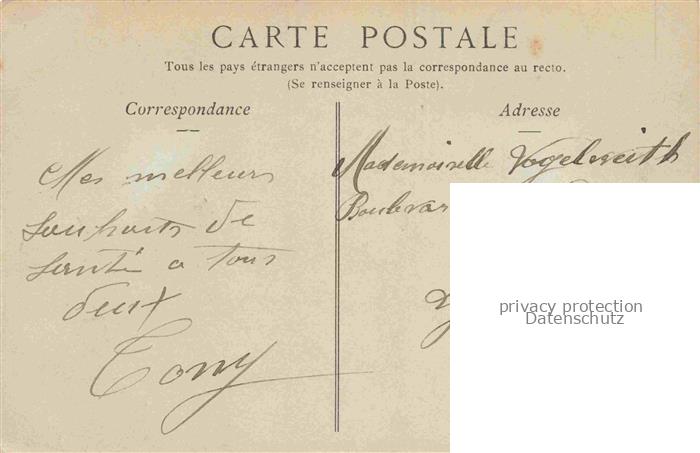 CARTE POSTALE
Tous les pays étrangers n'acceptent pas la correspondance au recto.
(Se renseigner à la Poste).
Correspondance
Mes meilleurs
souhaits de
santé a tous
deux
Tony
Adresse
Mademoiselle Vogelweith
Boulevar
privacy protection
Datenschutz